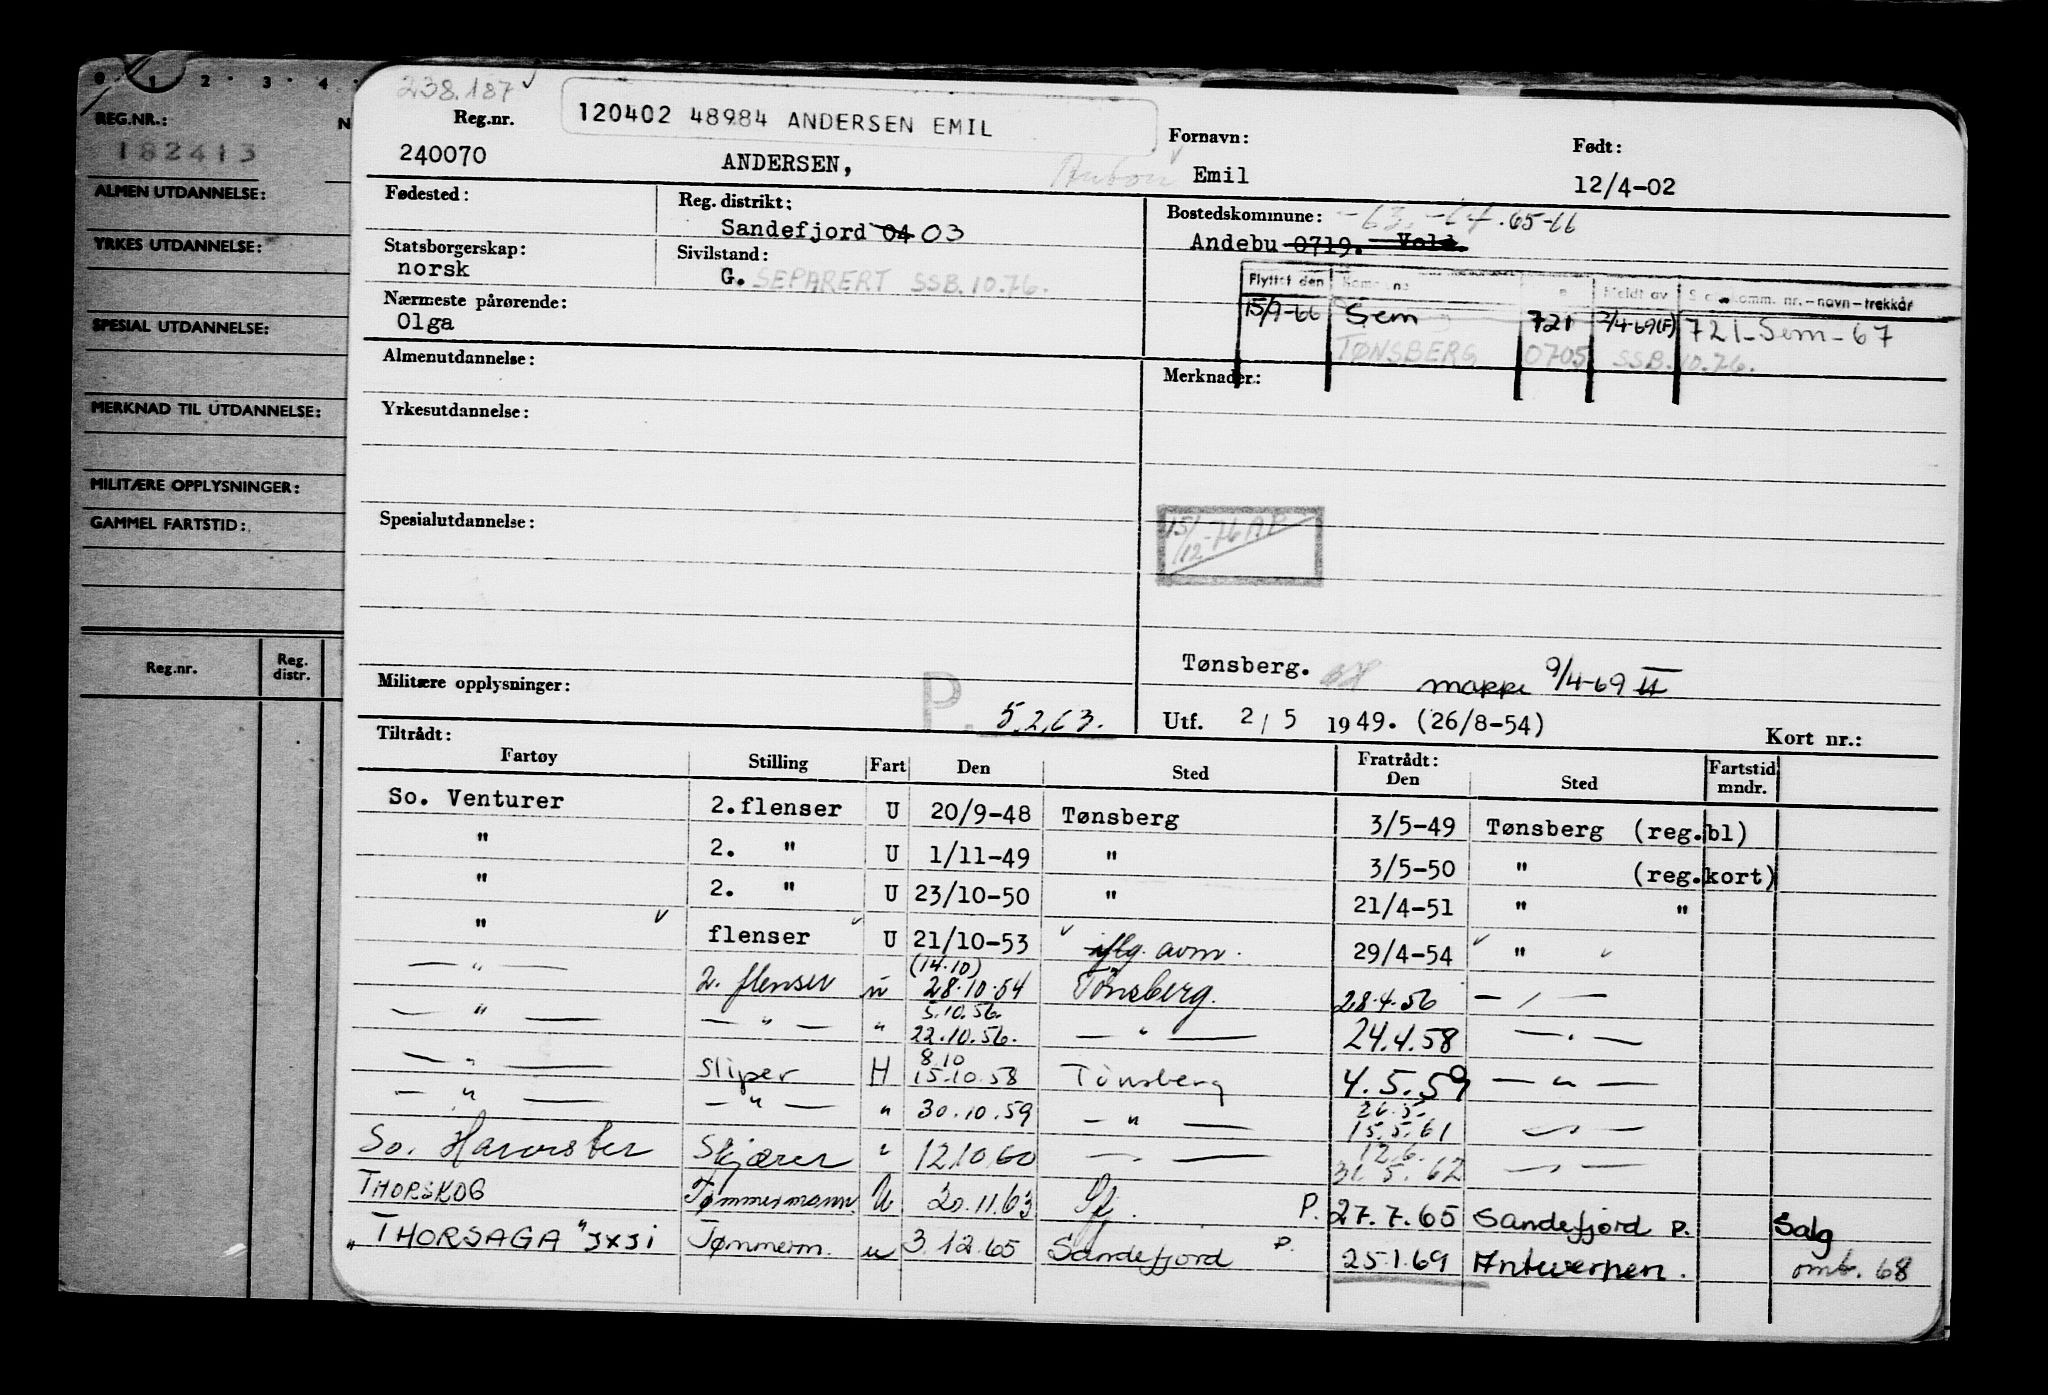 0 1 2 3 4
REG.NR.: N
182413
ALMEN UTDANNELSE:
YRKES UTDANNELSE:
SPESIAL UTDANNELSE:
MERKNAD TIL UTDANNELSE:
MILITÆRE OPPLYSNINGER:
GAMMEL FARTSTID:
Reg.nr. Reg. distr.
238.187
120402 48984 ANDERSEN EMIL
Reg.nr. Fornavn: Født:
240070 ANDERSEN, Anton Emil 12/4-02
Fødested: Reg. distrikt: Bostedskommune: -63. -64. 65-66
Sandefjord 04 03 Andebu 0719. Vold.
Statsborgerskap: Sivilstand:
norsk G. SEPARERT SSB.10.76.
Flyttet den Kommune Meldt av Skattekomm. nr.-navn-trekkår
Nærmeste pårørende:
Olga
15/9-66 Sem 721 2/4-69(F) 721-Sem-67
TØNSBERG 0705 SSB.10.76.
Almenutdannelse: Merknader:
Yrkesutdannelse:
Spesialutdannelse:
15/12-76 AB
Tønsberg. mappe 9/4-69 II
Militære opplysninger: P. 5.2.63.
Utf. 2/5 1949. (26/8-54) Kort nr.:
Tiltrådt: Fratrådt:
Fartøy Stilling Fart Den Sted Den Sted Fartstid mndr.
So. Venturer 2.flenser U 20/9-48 Tønsberg 3/5-49 Tønsberg (reg.bl)
" 2. " U 1/11-49 " 3/5-50 " (reg.kort)
" 2. " U 23/10-50 " 21/4-51 " "
" flenser U 21/10-53 iflg. avm. 29/4-54 "
— " — 2. flenser u (14.10) 28.10.54 Tønsberg. 28.4.56 — " —
— " — — " — " 5.10.56. 22.10.56. — " — 24.4.58 — " —
— " — Sliper H 8.10 15.10.58 Tønsberg 4.5.59 — " —
— " — — " — " 30.10.59 — " — 26.5. 15.5.61 — " —
So. Harvester Skjærer " 12.10.60 — " — 12.6. 31.5.62 — " —
THORSKOG Tømmermann U 20.11.63 Sfj. P. 27.7.65 Sandefjord P. Salg
"THORSAGA" JXJI Tømmerm. u 3.12.65 Sandefjord P. 25.1.69 Antwerpen. omb. 68